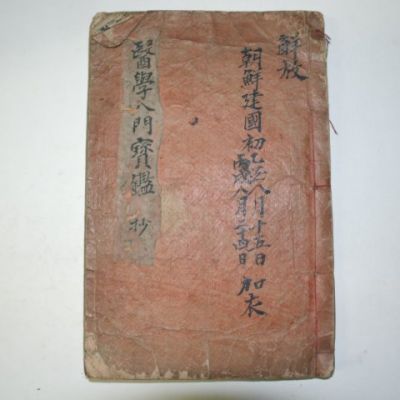 解放
朝鮮建國初乙酉八月十五日
八月二十四日 加衣
醫學入門寶鑑 抄